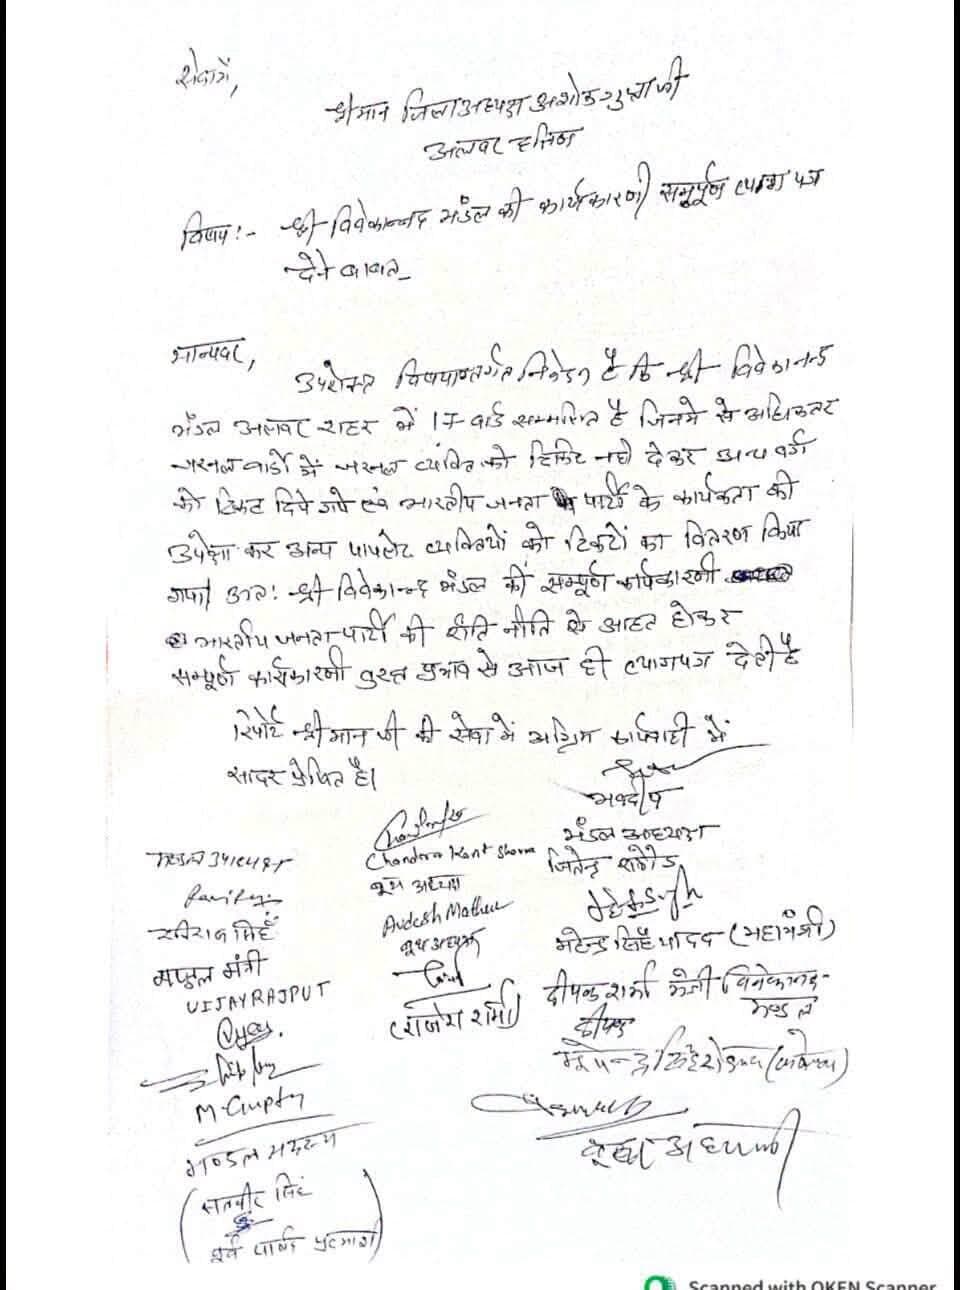 सेवामें,
श्रीमान जिलाअध्यक्ष अशोक गुप्ता जी
अलवर दक्षिण
विषय:- श्री विवेकान्नद मंडल की कार्यकारणी सम्पूर्ण त्याग पत्र
देने बाबत_
मान्यवर,
उपरोक्त विषयान्तर्गत निवेदन है कि श्री विवेकानन्द
मंडल अलवर शहर में 17 वार्ड सम्मलित है जिनमे से अधिकतर
जरनल वार्डो में जरनल व्यक्ति को टिकिट नही देकर अन्य वर्ग
को टिकट दिये गये एवं भारतीय जनता पार्टी के कार्यकता की
उपेक्षा कर अन्य व्यक्तियों को टिकटों का वितरण किया
गया अत: श्री विवेकान्नद मंडल की सम्पूर्ण कार्यकारणी
भारतीय जनता पार्टी की रीति नीति से आहत होकर
सम्पूर्ण कार्यकारणी तुरन्त प्रभाव से आज ही त्यागपत्र देती है
रिपोर्ट श्रीमान जी की सेवा में अग्रिम कार्यवाही में
सादर प्रेषित है।
भवदीय
मंडल अध्यक्ष
जितेन्द्र राठौड
Chandra Kant Sharma
बूथ अध्यक्ष
मण्डल उपाध्यक्ष
रविराज सिंह
Avdesh Mathur
बूथ अध्यक्ष
महेन्द्र सिंह यादव (महामंत्री)
मण्डल मंत्री
VIJAY RAJPUT
(राजेश शर्मा)
दीपक शर्मा मंत्री विवेकानन्द
मण्डल
दीपक
M. Gupta
मण्डल सदस्य
बूथ अध्यक्ष
(सतवीर सिंह
पूर्व पार्षद)
Scanned with OKEN Scanner